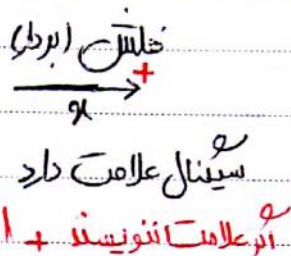 فلش (بردار)
+
x
سیگنال علامت دارد
اگر علامت ننویسند +